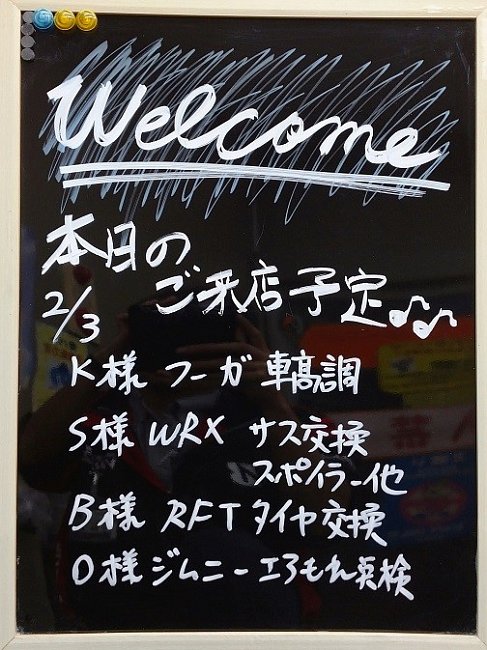 Welcome
本日の
2/3 ご来店予定♪♫
K様 フーガ 車高調
S様 WRX サス交換
スポイラー他
B様 RFTタイヤ交換
O様 ジムニー エアもれ点検